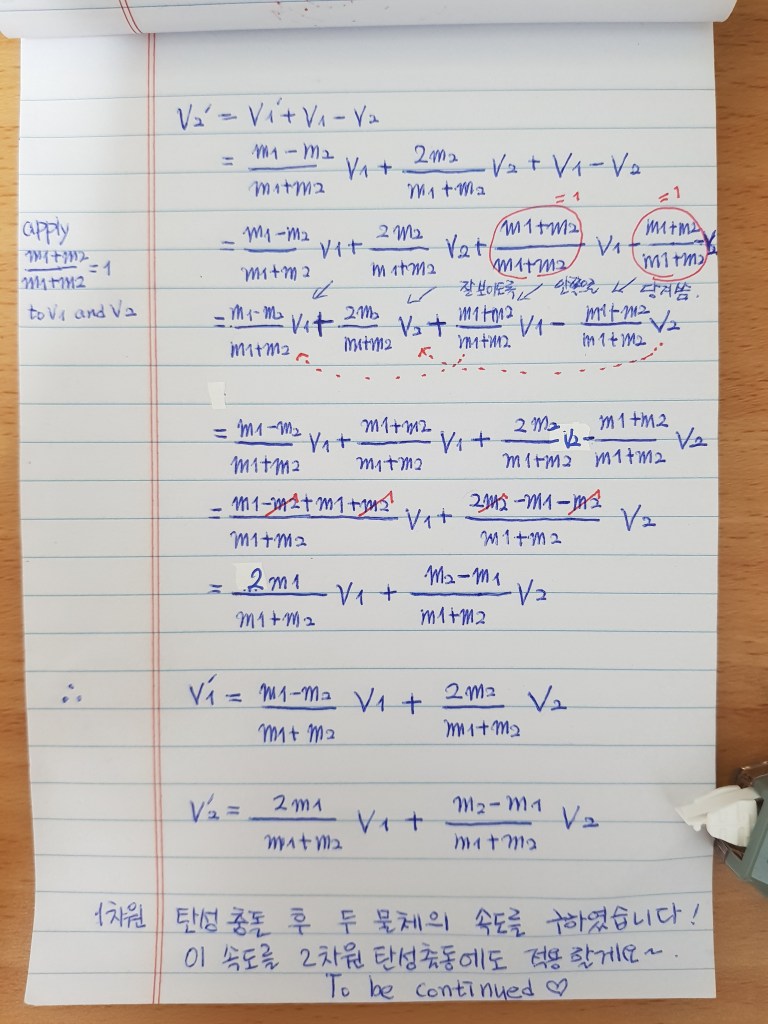 V2' = V1' + V1 - V2
= (m1-m2)/(m1+m2) V1 + 2m2/(m1+m2) V2 + V1 - V2
=1 =1
apply (m1+m2)/(m1+m2) = 1 to V1 and V2
= (m1-m2)/(m1+m2) V1 + 2m2/(m1+m2) V2 + (m1+m2)/(m1+m2) V1 - (m1+m2)/(m1+m2) V2
잘보이도록 안쪽으로 당겨씀.
= (m1-m2)/(m1+m2) V1 + 2m2/(m1+m2) V2 + (m1+m2)/(m1+m2) V1 - (m1+m2)/(m1+m2) V2
= (m1-m2)/(m1+m2) V1 + (m1+m2)/(m1+m2) V1 + 2m2/(m1+m2) V2 - (m1+m2)/(m1+m2) V2
= (m1-m2+m1+m2)/(m1+m2) V1 + (2m2-m1-m2)/(m1+m2) V2
= 2m1/(m1+m2) V1 + (m2-m1)/(m1+m2) V2
∴ V1' = (m1-m2)/(m1+m2) V1 + 2m2/(m1+m2) V2
V2' = 2m1/(m1+m2) V1 + (m2-m1)/(m1+m2) V2
1차원 탄성충돌 후 두 물체의 속도를 구하였습니다!
이 속도를 2차원 탄성충동에도 적용할게요~.
To be continued ♡